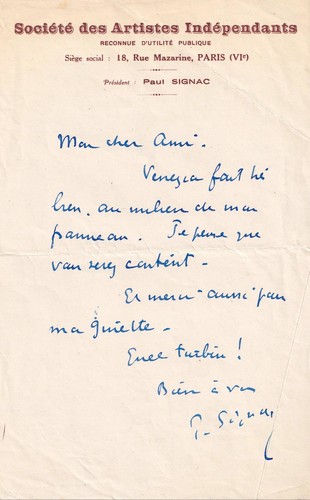 Société des Artistes Indépendants
RECONNUE D'UTILITÉ PUBLIQUE
Siège social : 18, Rue Mazarine, PARIS (VIe)
Président : Paul SIGNAC
Mon cher Ami.
Venezia fait très
bien, au milieu de mon
panneau. Je pense que
vous serez content -
Et merci aussi pour
ma
Quel turbin !
Bien à vous
P. Signac